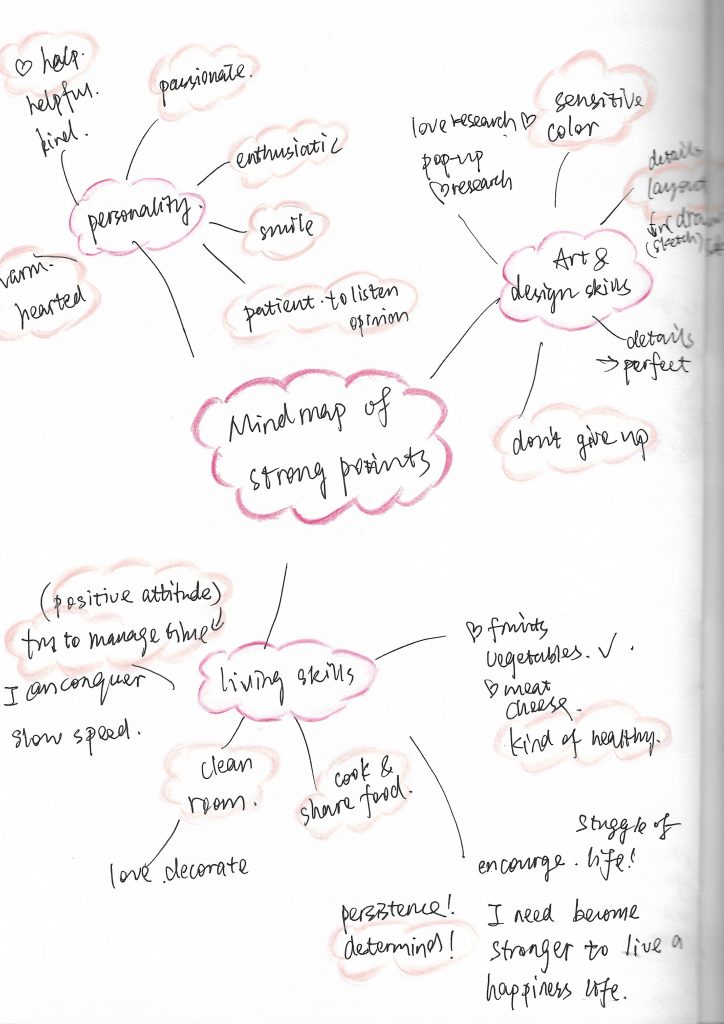 ♡ help.
helpful.
kind.
passionate.
enthusiatic
personality.
smile
warm.
hearted
patient. to listen
opinion
love research ♡
pop-up
♡ research
sensitive
color
details
layout
(sketch)
Art &
design skills
details
→ perfect
don't give up
Mindmap of
strong points
(positive attitude)
try to manage time
I can conquer
slow speed.
living skills
♡ fruits
vegetables. ✓.
♡ meat
cheese.
kind of healthy.
clean
room.
cook &
share food.
love decorate
struggle of
encourge. life!
persistence!
determind!
I need become
stronger to live a
happiness life.